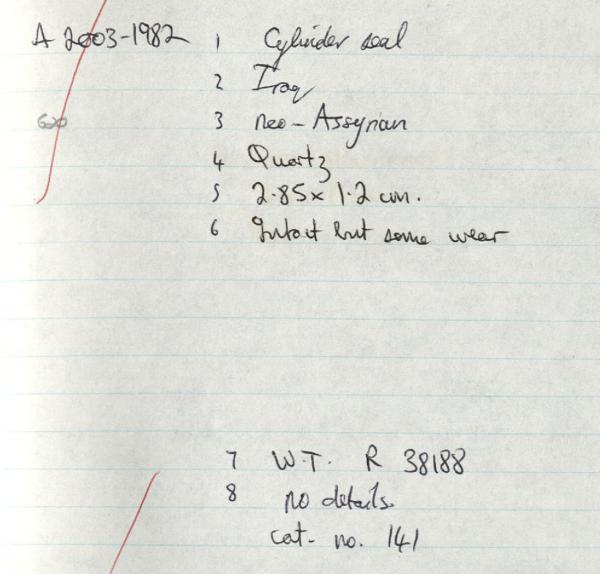 A 2003-1982 1 Cylinder seal
2 Iraq
3 neo-Assyrian
4 Quartz
5 2.85 x 1.2 cm.
6 Intact but some wear
7 W.T. R 38188
8 no details.
cat. no. 141